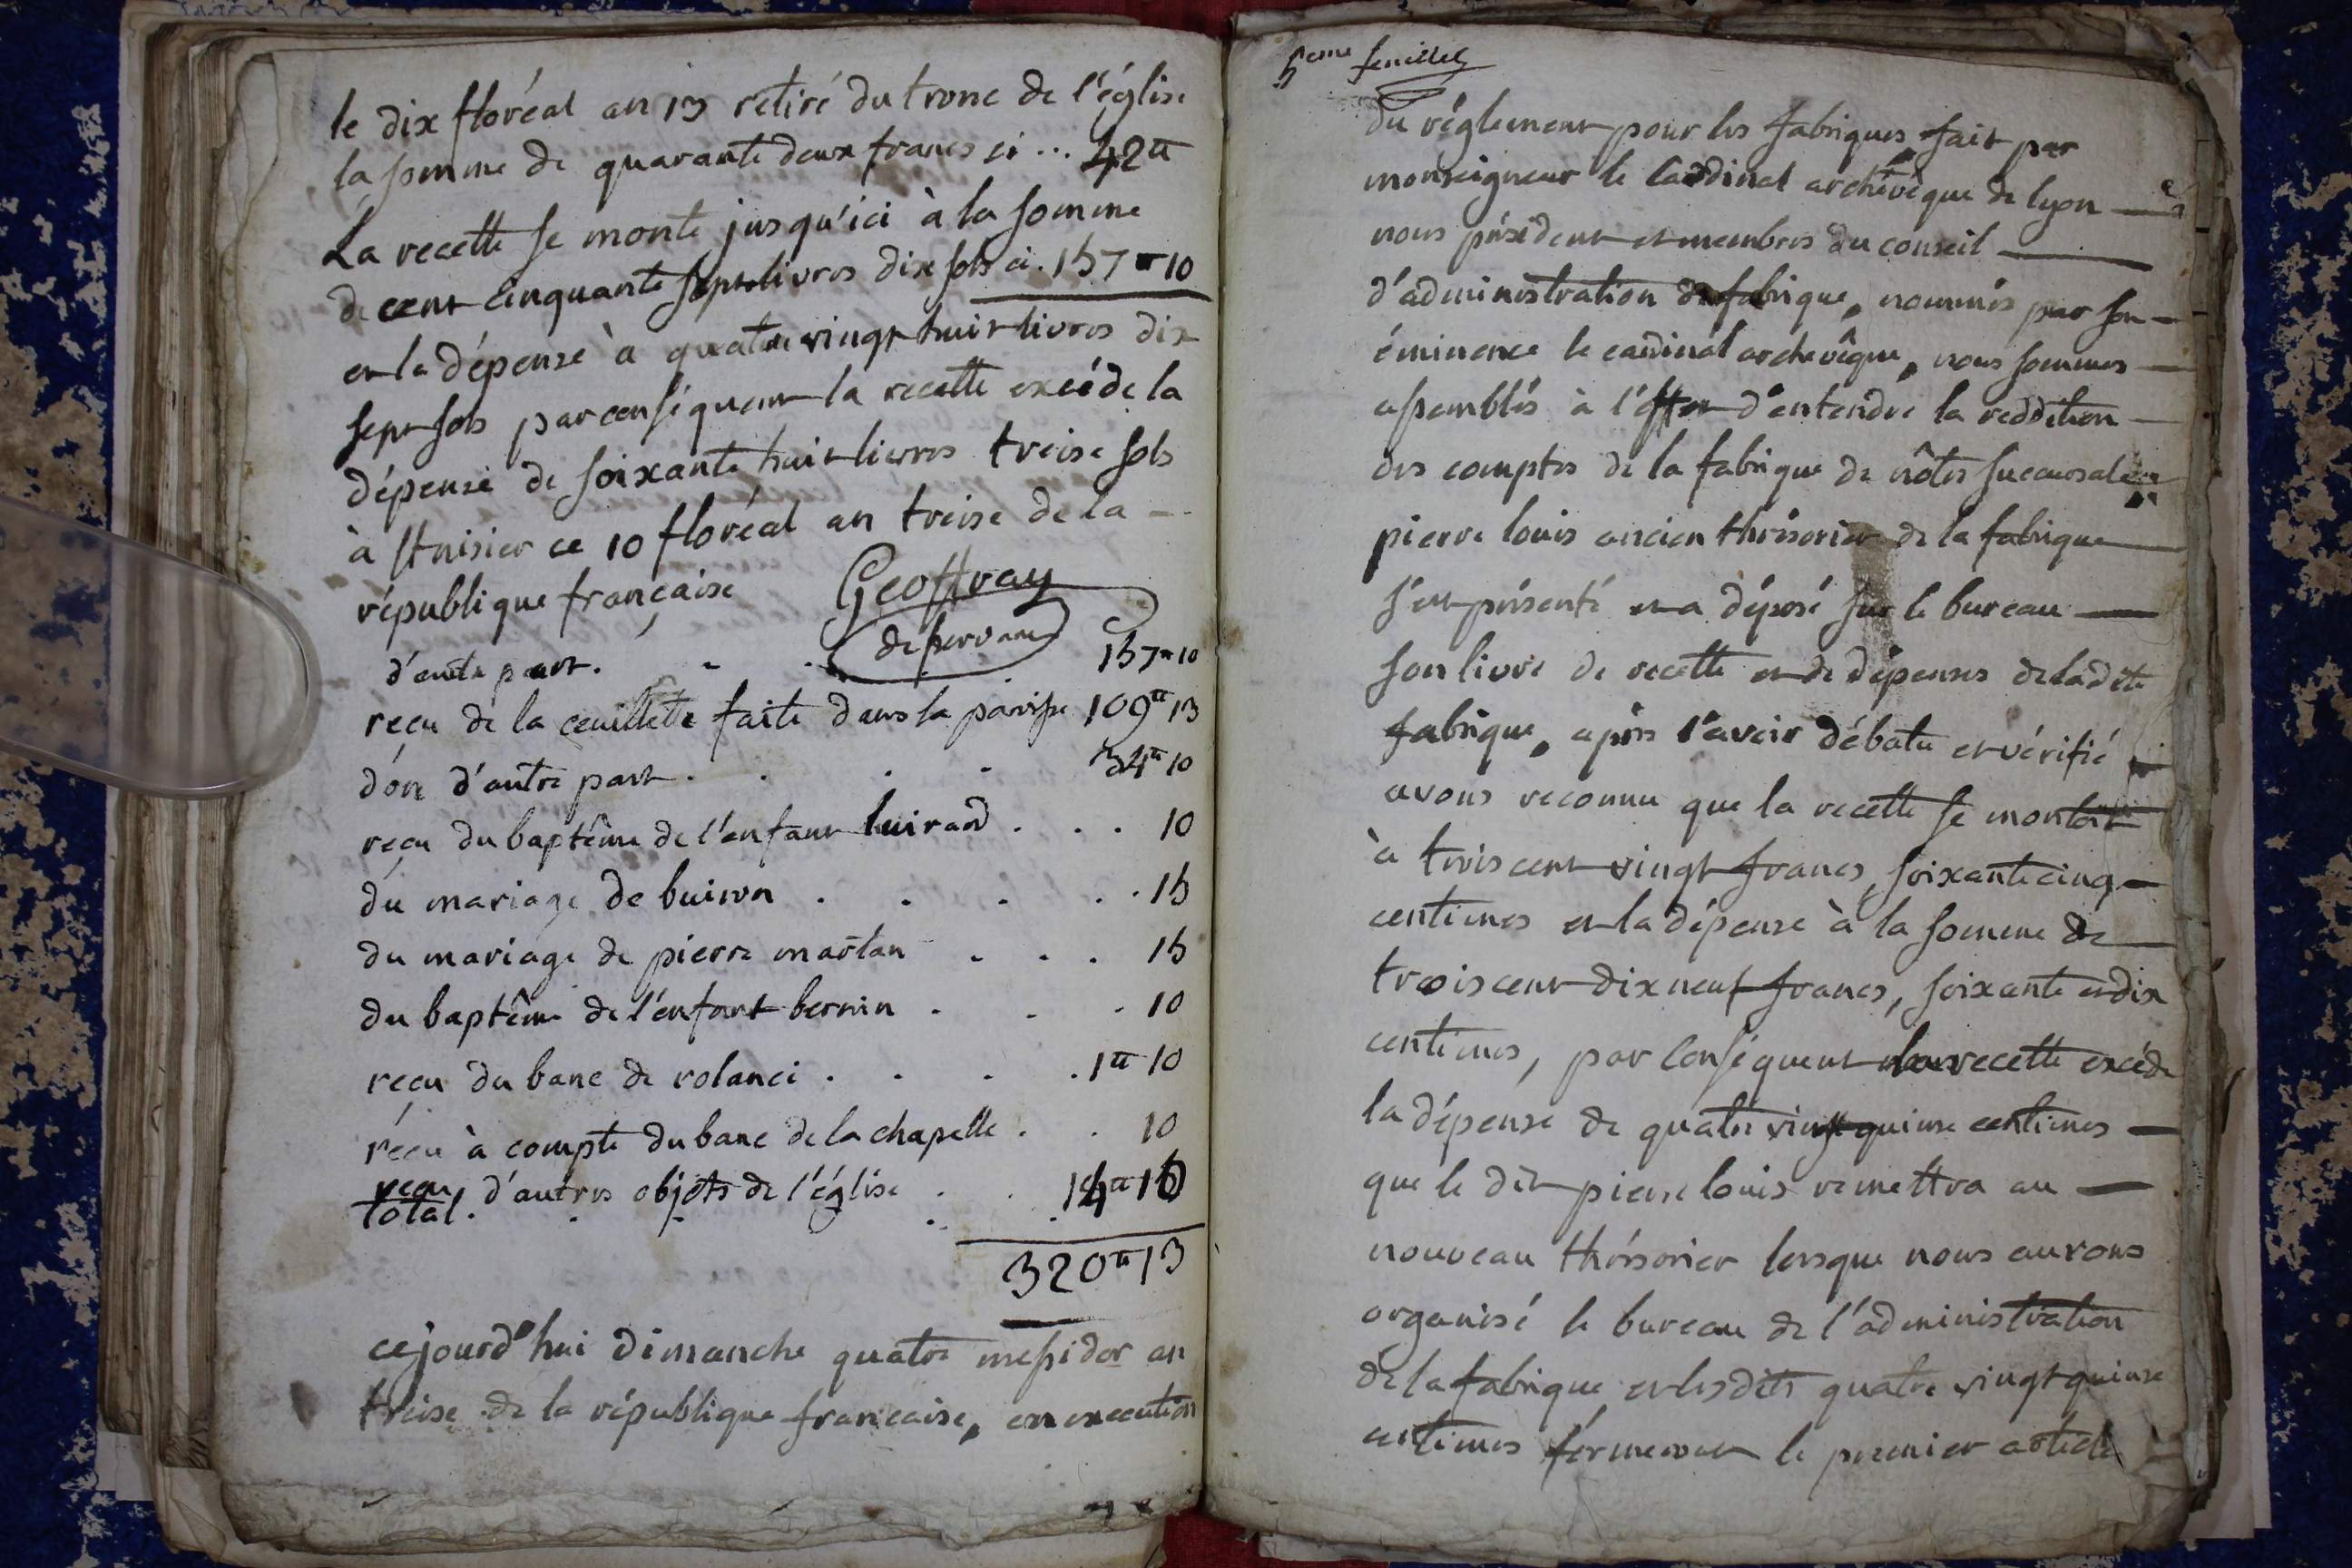 le dix floréal an 13 retiré du tronc de l'église
la somme de quarante deux francs ci ... 42tt
La recette se monte jusqu'ici à la somme
de cent cinquante sept livres dix sols ci . 157tt10
et la dépense à quatre vingt huit livres dix
sept sols par conséquent la recette excéde la
dépense de soixante huit livres treise sols
à St nisier ce 10 floréal an treise de la
république française Geoffray
desservant
d'autre part . . . 157tt10
reçu de la ceuillete faite dans la paroisse 109tt13
don d'autre part . . . . 34tt10
reçu du baptême de l'enfant luirard . . . 10
du mariage de buiron . . . . . 15
du mariage de pierre martan . . . 15
du baptême de l'enfant bernin . . . 10
reçu du banc de rolanci . . . . 1tt10
reçu à compte du banc de la chapelle . . 10
reçu d'autres objets de l'église . . 14tt10
total . . . . .
320tt13
cejourd'hui dimanche quatre messidor an
treise de la république francaise, en execution
5eme feuillet
du réglement pour les fabriques, fait par
monseigneur le Cardinal archévêque de lyon —
nous président et membres du conseil —
d'administration de fabrique, nommés par son —
éminence le cardinal archevêque, nous sommes —
assemblés à l'effet d'entendre la reddition —
des comptes de la fabrique de nôtre succursale
pierre louis ancien thrésorier de la fabrique —
s'est présenté et a déposé sur le bureau —
son livre de recette et de dépenses de la dite
fabrique, après l'avoir débatu et vérifié
avons reconnu que la recette se montoit
à trois cent vingt francs, soixante cinq —
centimes et la dépense à la somme de —
trois cent dix neuf francs, soixante et dix
centimes, par conséquent la recette excéde
la dépense de quatre vingt quinse centimes —
que le dit pierre louis remettra au —
nouveau thrésorier lorsque nous aurons
organisé le bureau de l'administration
de la fabrique et les dits quatre vingt quinse
centimes formeront le premier article